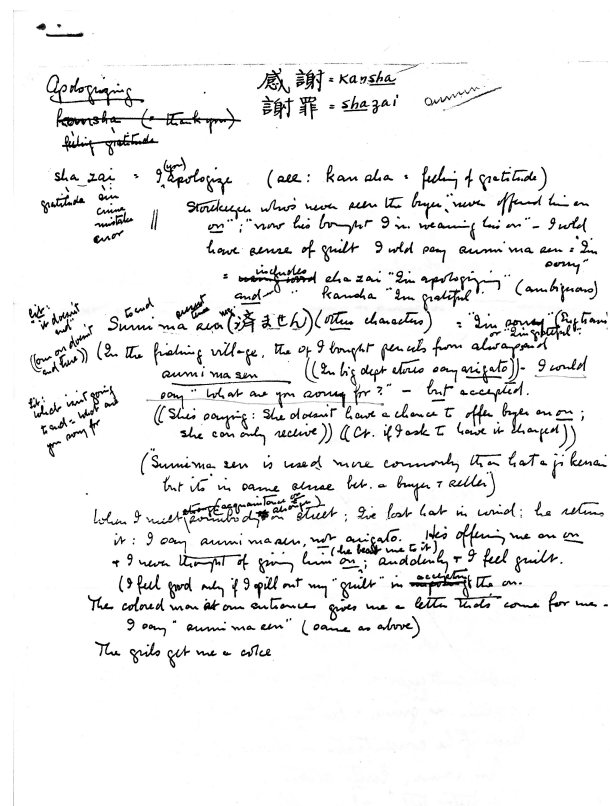 Apologizing
感謝 = kansha
謝罪 = shazai
kansha (= thank you)
feeling gratitude
sha zai = I (you) apologize (see: kansha = feeling of gratitude)
gratitude sin
crime
mistake
error
Storekeeper who's never seen the buyer, "never offered him an
on"; "now he's bought I'm wearing his on" – I wold
have sense of guilt I wold say sumimasen = "I'm
sorry"
= includes shazai "I'm apologizing" (ambiguous)
and " kansha "I'm grateful"
lit:
"it doesn't
end"
(our on doesn't
end here)
to end present time neg
Sumimasen (済ません) (others characters) = "I'm sorry" (Eng trans)
"I'm grateful"
(In the fishing village, the I bought pencils from always said
sumimasen ((In big dept stores say arigato)) – I could
say "What are you sorry for?" – but accepted.
lit:
What isn't going
to end = what are
you sorry for
((She's saying: She doesn't have a chance to offer buyer an on;
she can only receive)) ((Cf. if I ask to have it charged))
("Sumimasen is used more commonly than katajikenai
but it's in same sense bet. a buyer & seller")
When I meet somebody (acquaintance or stranger) on street; I've lost hat in wind; he returns
it: I say sumimasen, not arigato. He's offering me an on
& I never thought of giving him on (he beat me to it); suddenly & I feel guilt.
(I feel good only if I spill out my "guilt" in accepting the on.
The colored man at our entrance gives me a letter that's come for me –
I say "sumimasen" (same as above)
The girls get me a coke